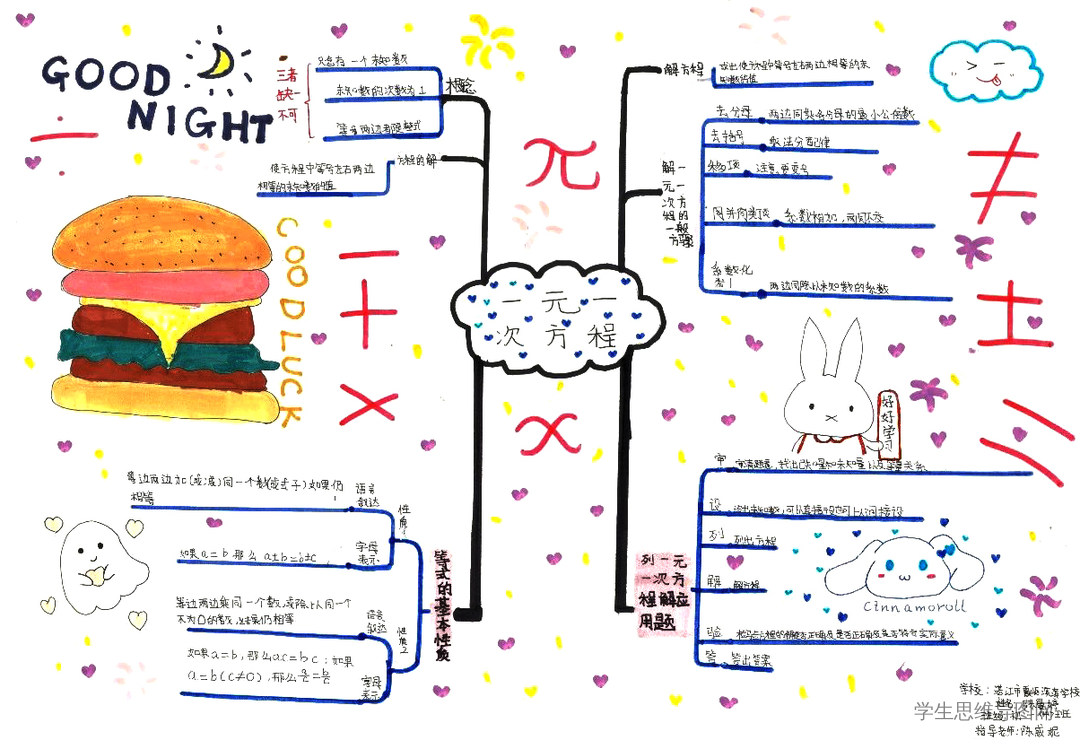 GOOD
NIGHT
三者
缺一
不可
只含有一个未知数
未知数的次数为1
等号两边都是整式
概念
方程的解
使方程中等号左右两边
相等的未知数的值
GOOD LUCK
一元一
次方程
解方程
求出使方程中等号左右两边相等的未
知数的值
解一
元一
次方
程的
一般
步骤
去分母
两边同乘各分母的最小公倍数
去括号
乘法分配律
移项
注意要变号
合并同类项
系数相加,
系数化
为1
两边同除以未知数的系数
π
x
÷
−
+
×
≠
±
=
好好学习
等式的基本性质
性质1
语言
叙述
等边两边加(或减)同一个数(或式子)如果仍
相等
字母
表示
如果a=b那么 a±b=b±c
性质2
语言
叙述
等边两边乘同一个数,或除以同一个
不为0的数,结果仍相等
字母
表示
如果a=b,那么ac=bc;如果
a=b(c≠0),那么
列一元
一次方
程解应
用题
审
审清题意,找出已知量和未知量以及等量关系
设
设出未知数,可以直接设也可以间接设
列
列出方程
解
解方程
验
答
答出答案
cinnamoroll
学校:湛江市
姓名:
班级:
指导老师:陈
学生思维导图网